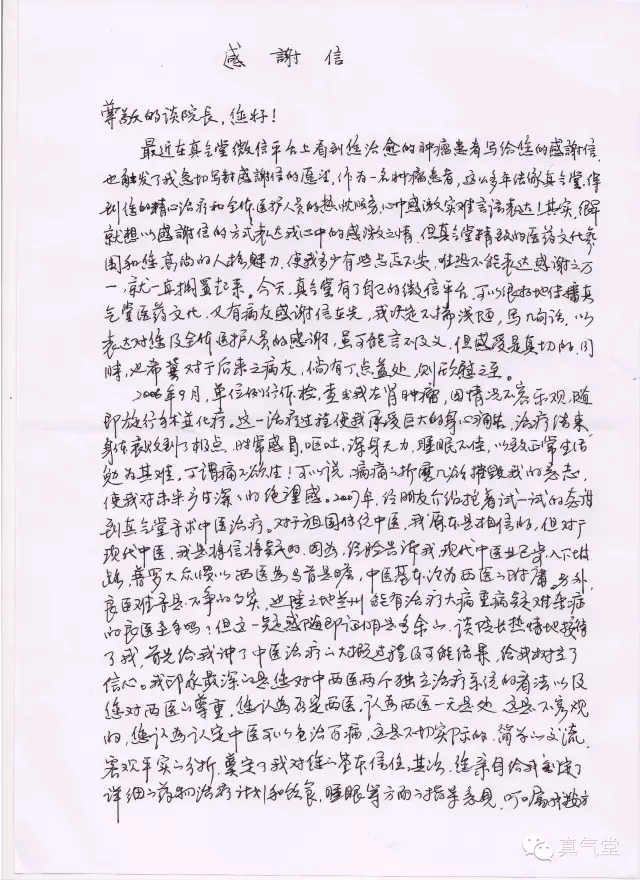 感謝信
尊敬的谈院长,您好!
最近在真气堂微信平台上看到您治愈的肿瘤患者写给您的感謝信,
也触发了我急切写封感謝信的愿望。作为一名肿瘤患者,这么多年法缘真气堂,得
到您的精心治疗和全体医护人员的热忱服务,心中感激实难言语表达!其实,很早
就想以感謝信的方式表达我心中的感激之情,但真气堂精致的医药文化氛
围和您高尚的人格魅力,使我多少有些忐忑不安,唯恐不能表达感谢之万
一,就一直搁置起来。今天,真气堂有了自己的微信平台,可以很好地传播真
气堂医药文化,又有病友感谢信在先,我决定不揣浅陋,写几句话,以
表达对您及全体医护人员的感谢,虽可能言不及义,但感受是真切的,同
時,也希冀对于后来之病友,倘有丁点益处,则欣慰之至。
2006年9月,单位例行体检,查出我左肾肿瘤,因情况不容乐观,随
即施行手术并化疗。这一治疗过程使我承受巨大的身心痛苦,治疗结束,
身体衰败到了极点,时常感冒,呕吐,浑身无力,睡眠不佳,以致正常生活
勉为其难,可谓痛不欲生!可以说,病痛之折磨几欲摧毁我的意志,
使我对未来产生深深的绝望感。2007年,经朋友介绍抱着试一试的态度
到真气堂寻求中医治疗。对于祖国传统中医,我原本是相信的,但对于
现代中医,我是将信将疑的,因为,经验告诉我,现代中医业已步入下坡
路,普罗大众惯以西医为马首是瞻,中医基本沦为西医之附庸。另外,
良医难寻是不争的事实,边陲之地兰州能有治疗大病重病疑难杂症
的良医圣手吗?但这一疑惑随即证明是多余的。谈院长热情地接待
了我,首先给我讲了中医治疗的大概过程及可能结果,给我树立了
信心。我印象最深的是您对中西医两个独立治疗系统的看法以及
您对西医的尊重,您认为否定西医,认为西医一无是处,这是不客观
的,您认为认定中医可以包治百病,这是不切实际的。简单的交流,
客观平实的分析,奠定了我对您的基本信任。其次,您亲自给我制定了
详细的药物治疗计划和饮食、睡眠等方面的指导意见,叮嘱我放弃
真气堂